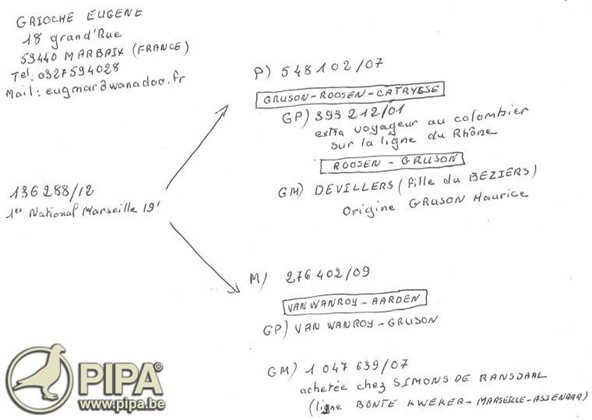 GRIOCHE EUGENE
18 grand'Rue
59440 MARBAIX (FRANCE)
Tel: 0327594028
Mail: eugmar@wanadoo.fr
P) 548102/07
GRUSON-ROOSEN-CATRYSSE
GP) 399 212/01
extra voyageur au colombier
sur la ligne du Rhône
ROOSEN - GRUSON
GM) DEVILLERS (fille du BEZIERS)
Origine GRUSON Maurice
136288/12
1er National Marseille 19'
M) 276402/09
VAN WANROY - AARDEN
GP) VAN WANROY - GRUSON
GM) 1 047 639/07
achetée chez SIMONS DE RANSDAAL
(ligne BONTE KWEKER - MARSEILLE - ASSENAAR)
PIPA®
www.pipa.be